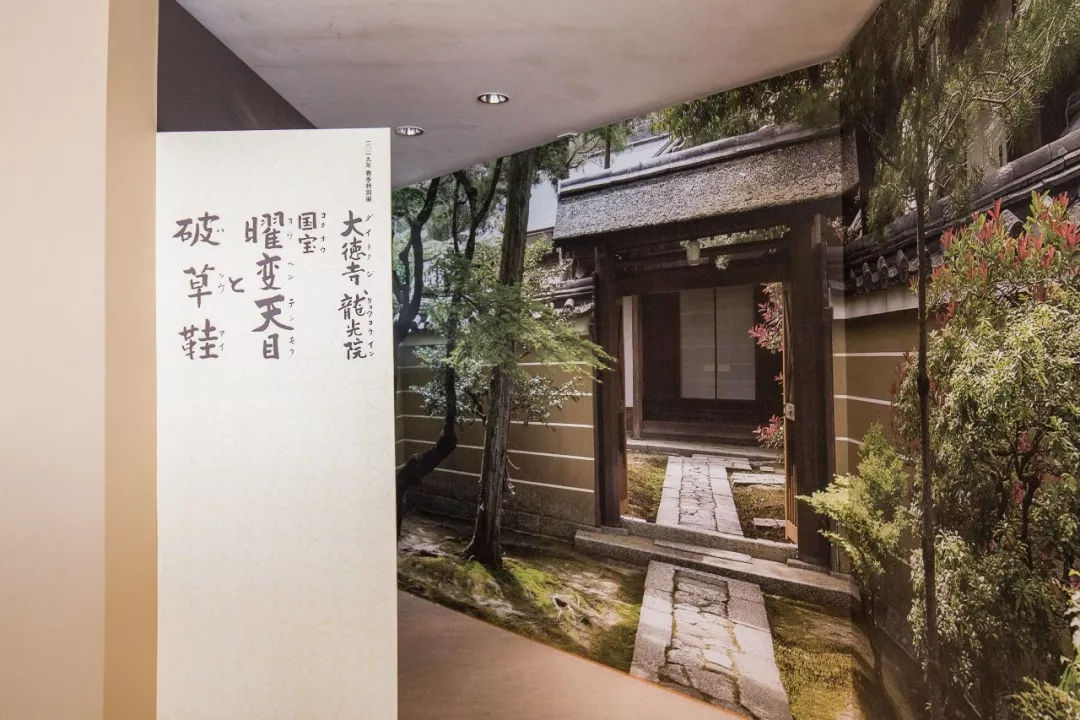 二〇一九年 春季特別展
大徳寺 龍光院
ダイトクジ リョウコウイン
国宝
コクホウ
曜変天目
ヨウヘンテンモク
と
破草鞋
ハソウアイ